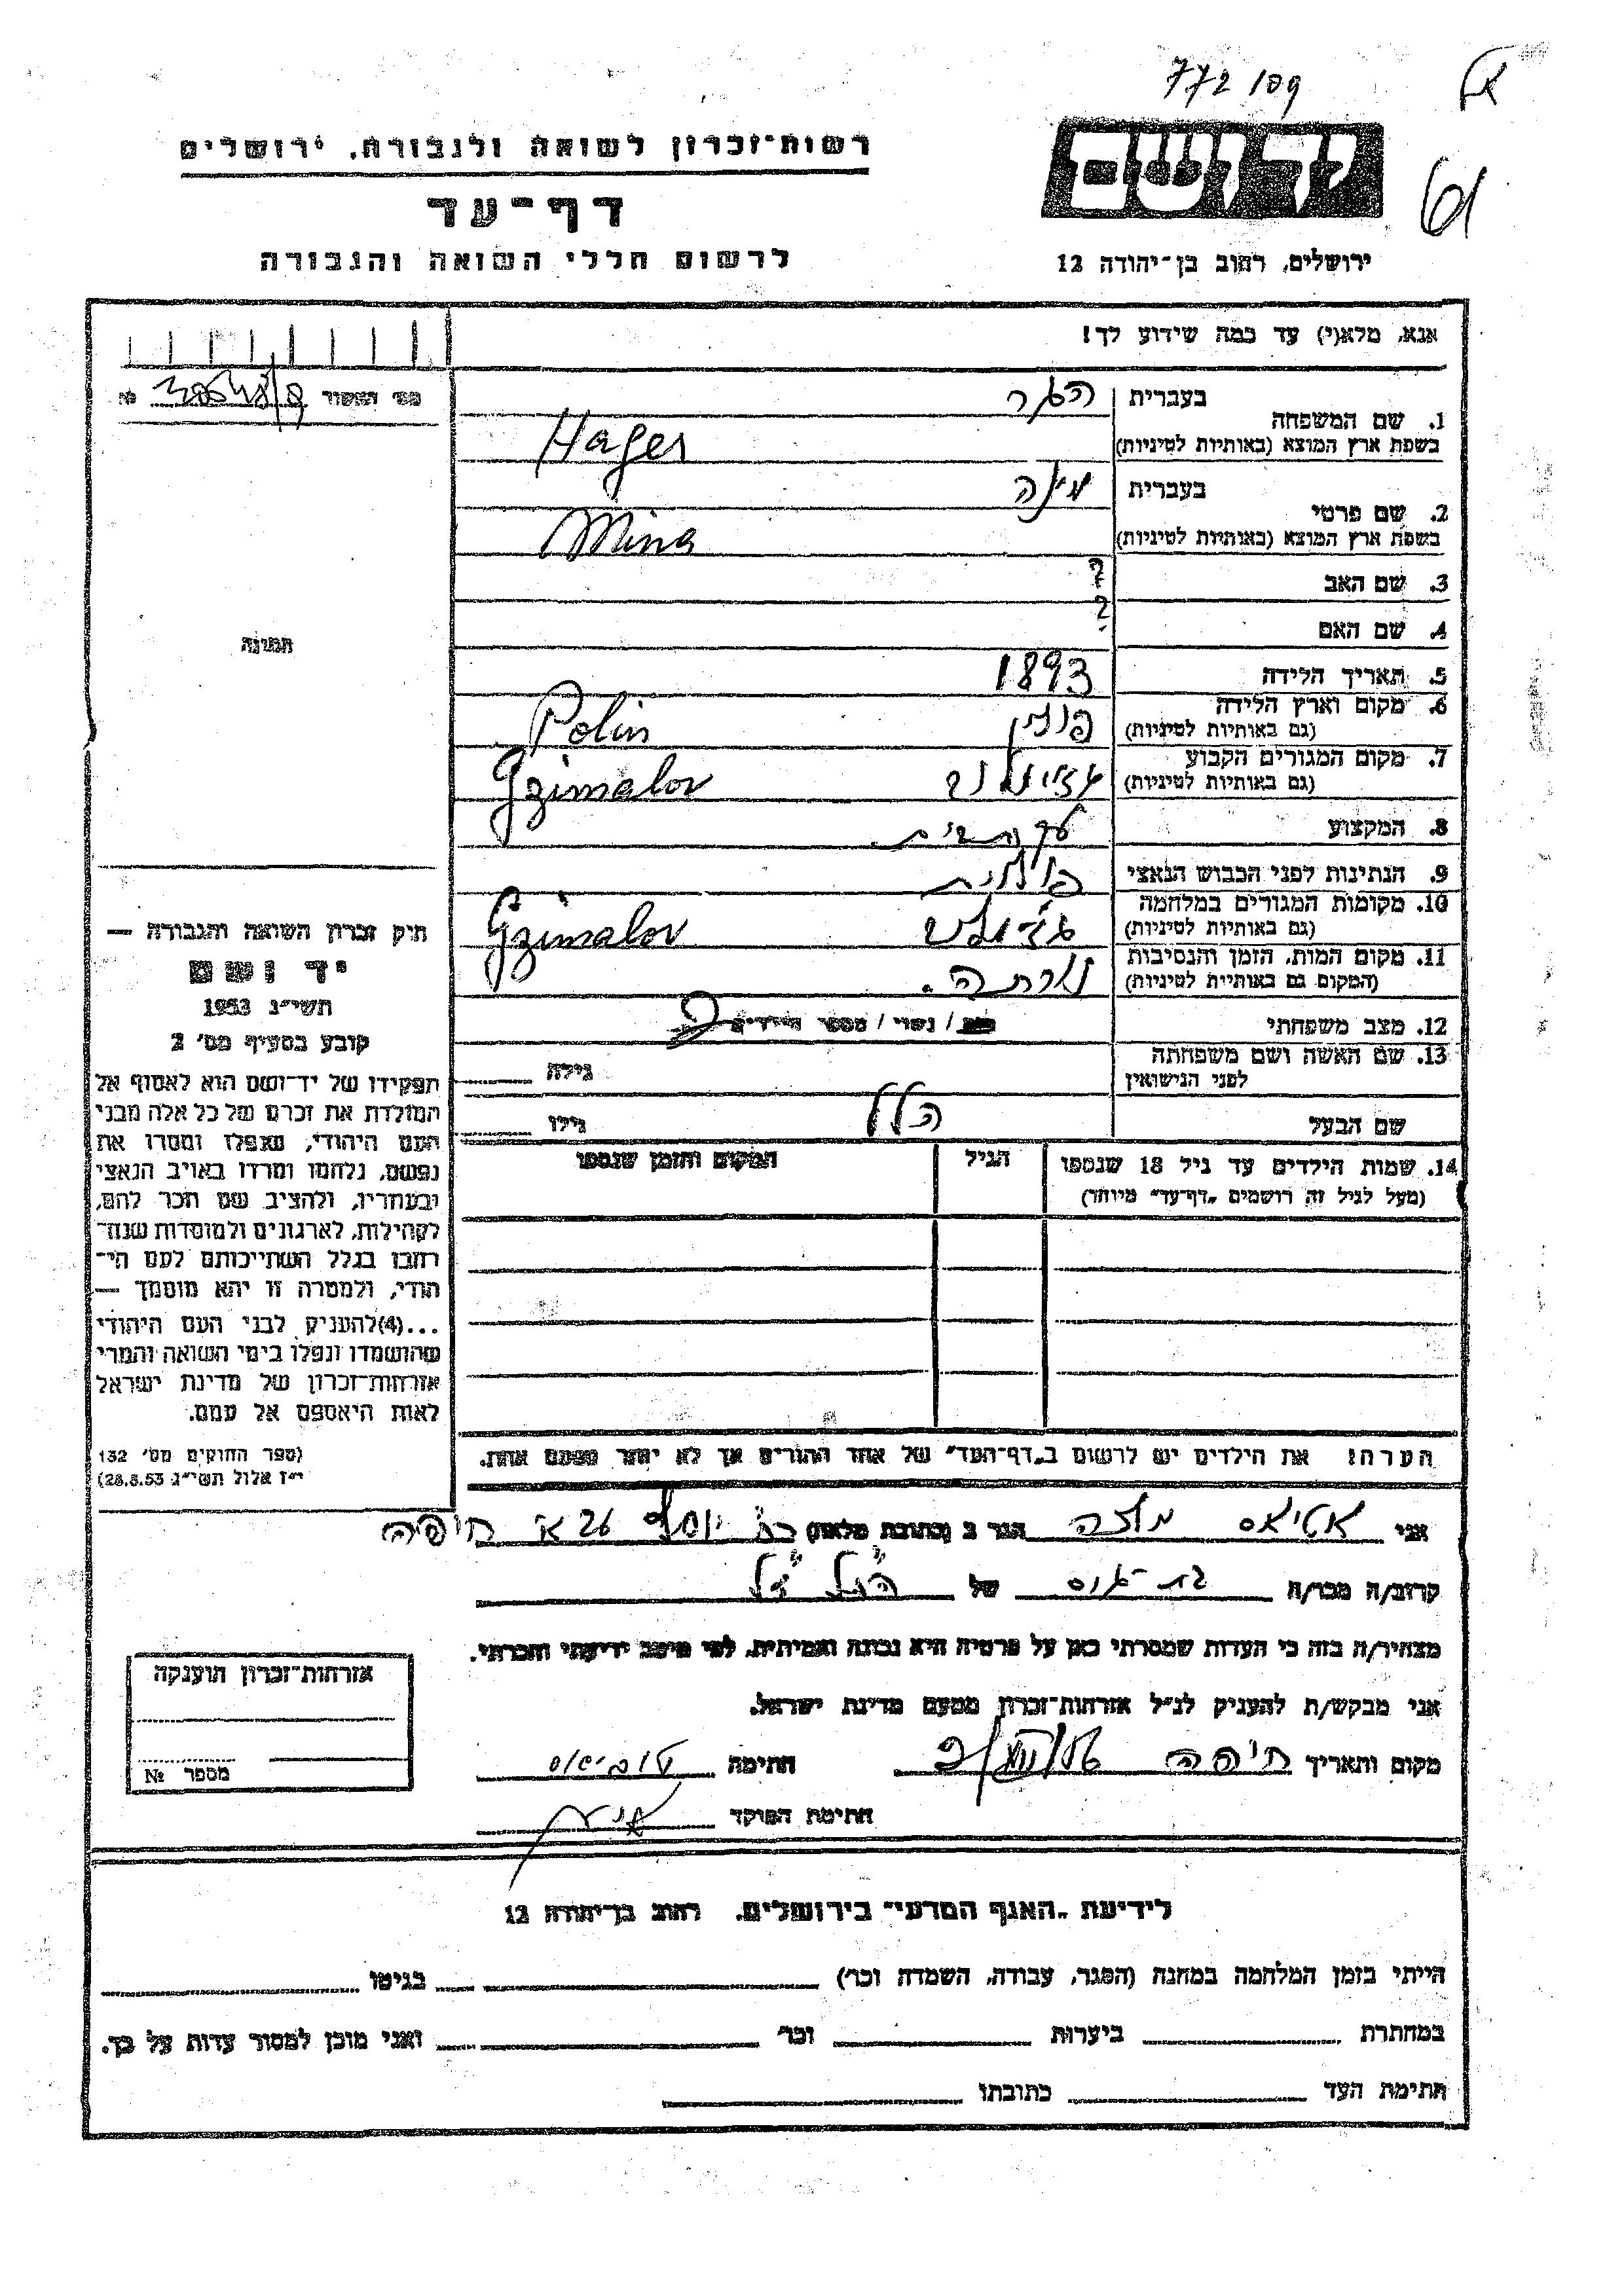 772/109
61
רשות־זכרון לשואה ולגבורה, ירושלים
דף־עד
לרשום חללי השואה והגבורה
יד ושם
ירושלים, רחוב בן־יהודה 12
אנא, מלא(י) עד כמה שידוע לך!
מס׳ האשור №
1. שם המשפחה בעברית הגר
בשפת ארץ המוצא (באותיות לטיניות) Hager
2. שם פרטי בעברית מינה
בשפת ארץ המוצא (באותיות לטיניות) Mina
3. שם האב ?
4. שם האם ?
תמונה
5. תאריך הלידה 1893
6. מקום וארץ הלידה פולין Polin
(גם באותיות לטיניות)
7. מקום המגורים הקבוע Gzimalov
(גם באותיות לטיניות)
8. המקצוע עקרת בית.
9. הנתינות לפני הכבוש הנאצי פולנית
10. מקומות המגורים במלחמה Gzimalov
(גם באותיות לטיניות)
11. מקום המות, הזמן והנסיבות
(המקום גם באותיית לטיניות)
12. מצב משפחתי רוק / נשוי / מספר הילדים
13. שם האשה ושם משפחתה גילה
לפני הנישואין
שם הבעל הלל גילו
14. שמות הילדים עד גיל 18 שנספו הגיל המקום והזמן שנספו
(מעל לגיל זה רושמים „דף־עד״ מיוחד)
תיק זכרון השואה והגבורה —
יד ושם
תשי״ג 1953
קובע בסעיף מס׳ 2
תפקידו של יד־ושם הוא לאסוף אל
המולדת את זכרם של כל אלה מבני
העם היהודי, שנפלו ומסרו את
נפשם, נלחמו ומרדו באויב הנאצי
ובעוזריו, ולהציב שם וזכר להם,
לקהילות, לארגונים ולמוסדות שנח־
רחבו בגלל השתייכותם לעם הי־
הודי, ולמטרה זו יהא מוסמך —
...(4) להעניק לבני העם היהודי
שהושמדו ונפלו בימי השואה והמרי
אזרחות־זכרון של מדינת ישראל
לאות היאספם אל עמם.
(ספר החוקים מס׳ 132
י״ז אלול תשי״ג 28.8.53)
הערה: את הילדים יש לרשום ב„דף־העד״ של אחד ההורים אך לא יותר מפעם אחת.
אני הגר ב (כתובת מלאה) יוסף 26 א חיפה
קרוב/ה מכר/ה בת־ של הנ״ל
מצהיר/ה בזה כי העדות שמסרתי כאן על פרטיה היא נכונה ואמיתית, לפי מיטב ידיעתי והכרתי.
אני מבקש/ת להעניק לנ״ל אזרחות־זכרון מטעם מדינת ישראל.
מקום ותאריך חיפה חתימה
חתימת הפוקד
אזרחות־זכרון הוענקה
מספר №
לידיעת „האגף המדעי״ בירושלים, רחוב בן־יהודה 12
הייתי בזמן המלחמה במחנה (הסגר, עבודה, השמדה וכו׳) בגיטו
במחתרת ביערות וכו׳ ואני מוכן למסור עדות על כך.
חתימת העד כתובתו